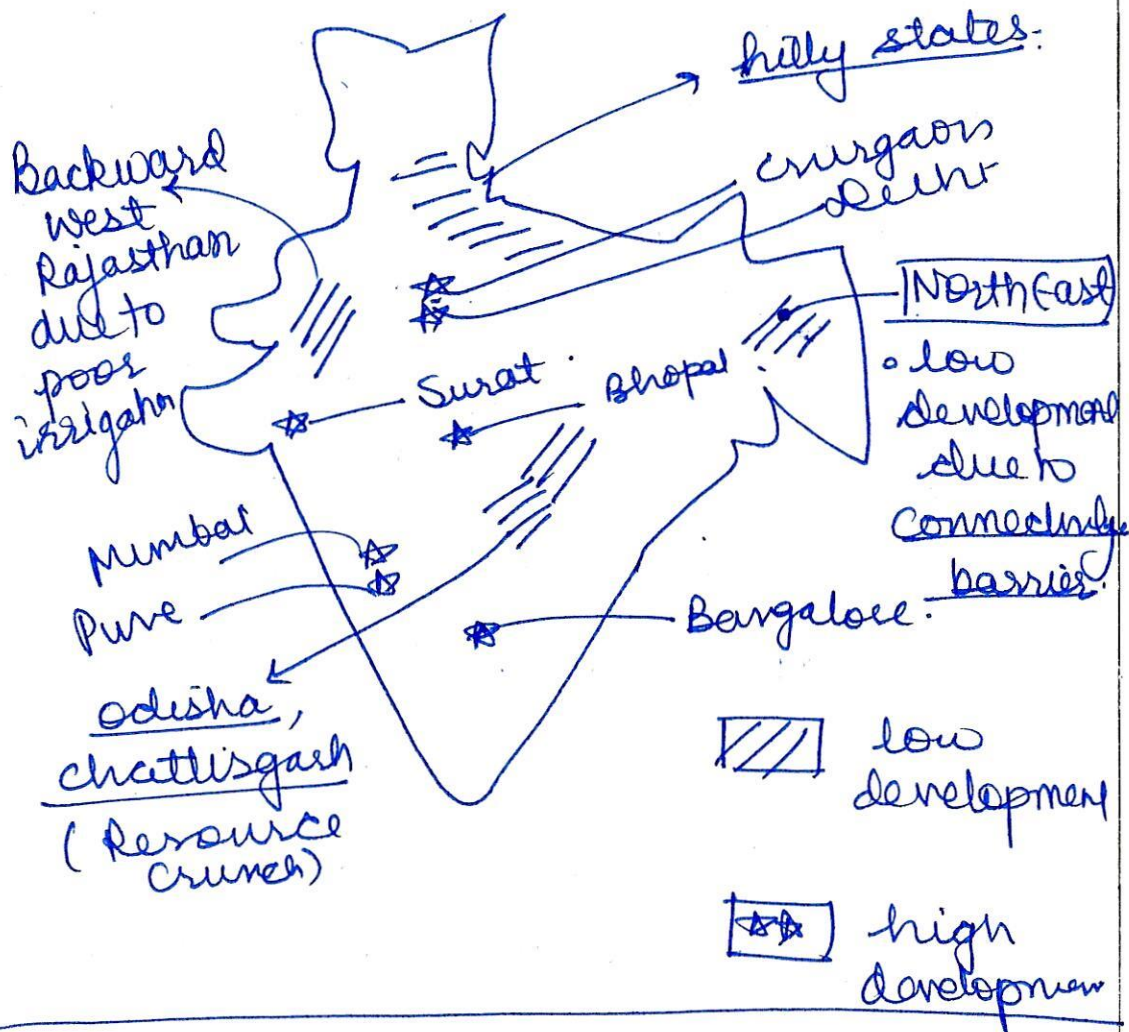 hilly states:
Gurgaon
Delhi
Backward
west
Rajasthan
due to
poor
irrigatn
North East
• low
development
due to
connectivity
barrier.
Surat
Bhopal
Mumbai
Pune
Bangalore.
odisha,
chattisgarh
(Resource
crunch)
low
development
high
development